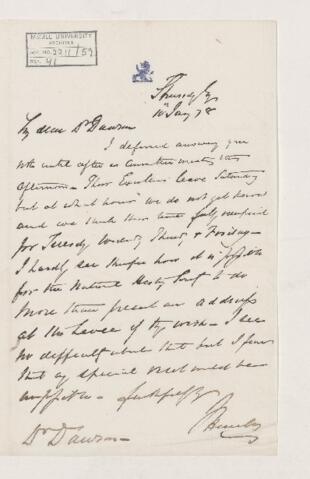 McGILL UNIVERSITY
ARCHIVES
ACC. NO. 2211/59
REF. 41
Thursday
10 Jany 78
My dear Dr Dawson
I deferred answering your
note until after a Committee meeting this
afternoon - Their Excellencies leave Saturday
but at what hour we do not yet know
and we think their time fully occupied
for Tuesday Wedndy Thursdy & Friday -
I hardly see therefore how it is possible
for the Natural Histy Socty to do
more than present an address
at the Levee if they wish - I see
no difficulty about that but I fear
that any special visit would be
impossible - faithfully
Dr Dawson -